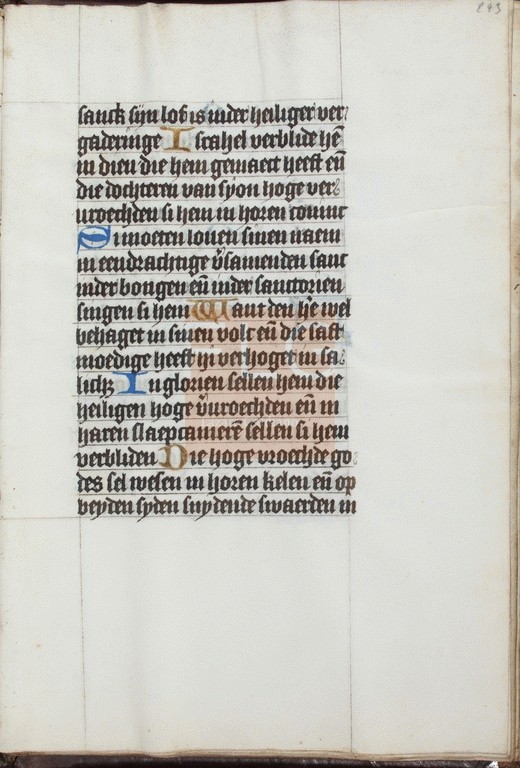 243
sanck sijn lof is inder heiliger ver
gaderinge Israhel verblide hē
in dien die hem gemaect heeft eñ
die dochteren van syon hoge ver
vroechden si hem in horen coninc
Si moeten louen sinen naem
in eendrachtige v̄samenden sanc
inder bongen eñ inder sanctorien
singen si hem Want den h̄e wel
behaget in sinen volc eñ die saft
moedige heeft hi verhoget in sa
lichz In glorien sellen hem die
heiligen hoge v̄vroechden eñ in
haren slaepcamerē sellen si hem
verbliden Die hoge vroechde go
des sel wesen in horen kelen eñ op
beyden syden snydende swaerden in